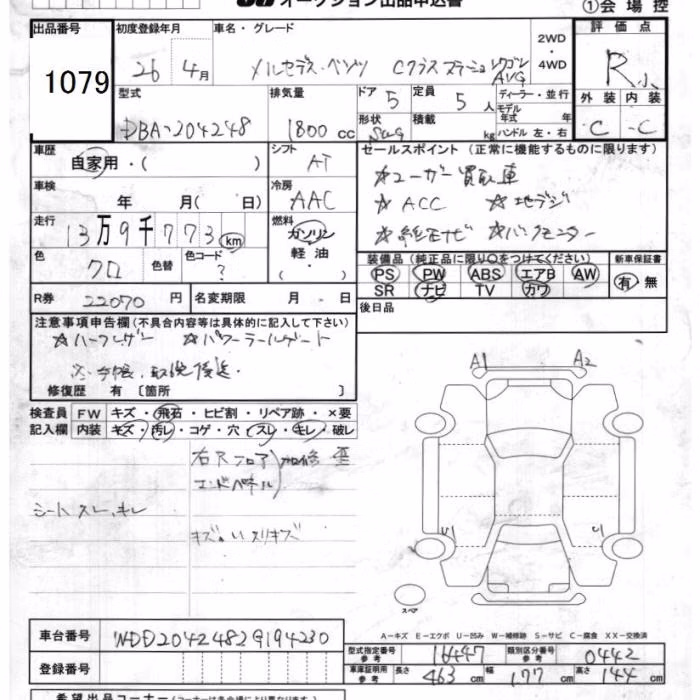 オークション出品申込書
①会場控
出品番号 初度登録年月 車名・グレード 2WD・4WD 評価点
1079
26 4月 メルセデス・ベンツ Cクラス ステーションワゴン AVG R
型式 排気量 ドア 5 定員 5人 ディーラー・並行 外装 内装
DBA-204248 1800cc 形状 積載 kg モデル年式 年 C C
ハンドル 左・右
車歴 自家用・( ) シフト AT セールスポイント (正常に機能するものに限ります)
車検 年 月( 日) 冷房 AAC
☆ユーザー買取車
☆ACC ☆地デジ
☆純正ナビ ☆バックモニター
走行 13万9千773km 燃料 ガソリン 軽油・
色 クロ 色替 色コード ?
装備品 (純正品に限り○をつけてください) 新車保証書
PS PW ABS エアB AW 有・無
SR ナビ TV カワ
R券 22070円 名変期限 月 日 後日品
注意事項申告欄 (不具合内容等は具体的に記入して下さい)
☆ハーフレザー ☆パワーテールゲート
修復歴 有 〔箇所 〕
検査員 FW キズ・飛石・ヒビ割・リペア跡・×要
記入欄 内装 キズ・汚レ・コゲ・穴・スレ・キレ・破レ
右Rフロア
エンドパネル
シートスレ、キレ
A1 A2
U1
スペア
A-キズ E-エクボ U-凹み W-補修跡 S-サビ C-腐食 XX-交換済
車台番号 WDD2042482G194230
型式指定番号 参考 16447 類別区分番号 参考 0442
登録番号
車庫証明用 参考 長さ 463cm 幅 177cm 高さ 144cm
希望出品コーナー